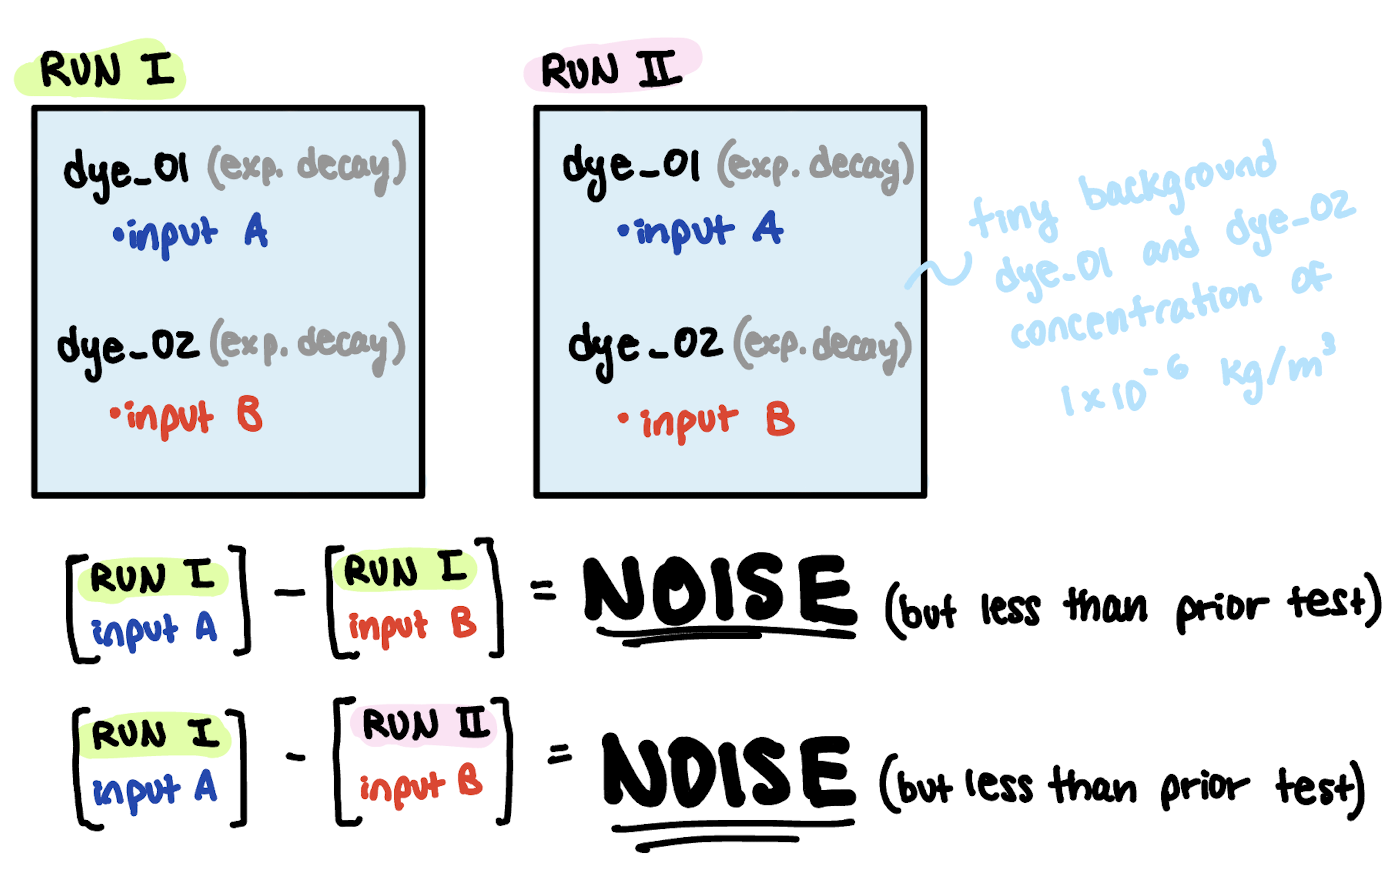 RUN I
dye_01 (exp. decay)
•input A
dye_02 (exp. decay)
•input B
RUN II
dye_01 (exp. decay)
•input A
dye_02 (exp. decay)
•input B
tiny background
dye_01 and dye_02
concentration of
1×10⁻⁶ kg/m³
[RUN I input A] - [RUN I input B] = NOISE (but less than prior test)
[RUN I input A] - [RUN II input B] = NOISE (but less than prior test)